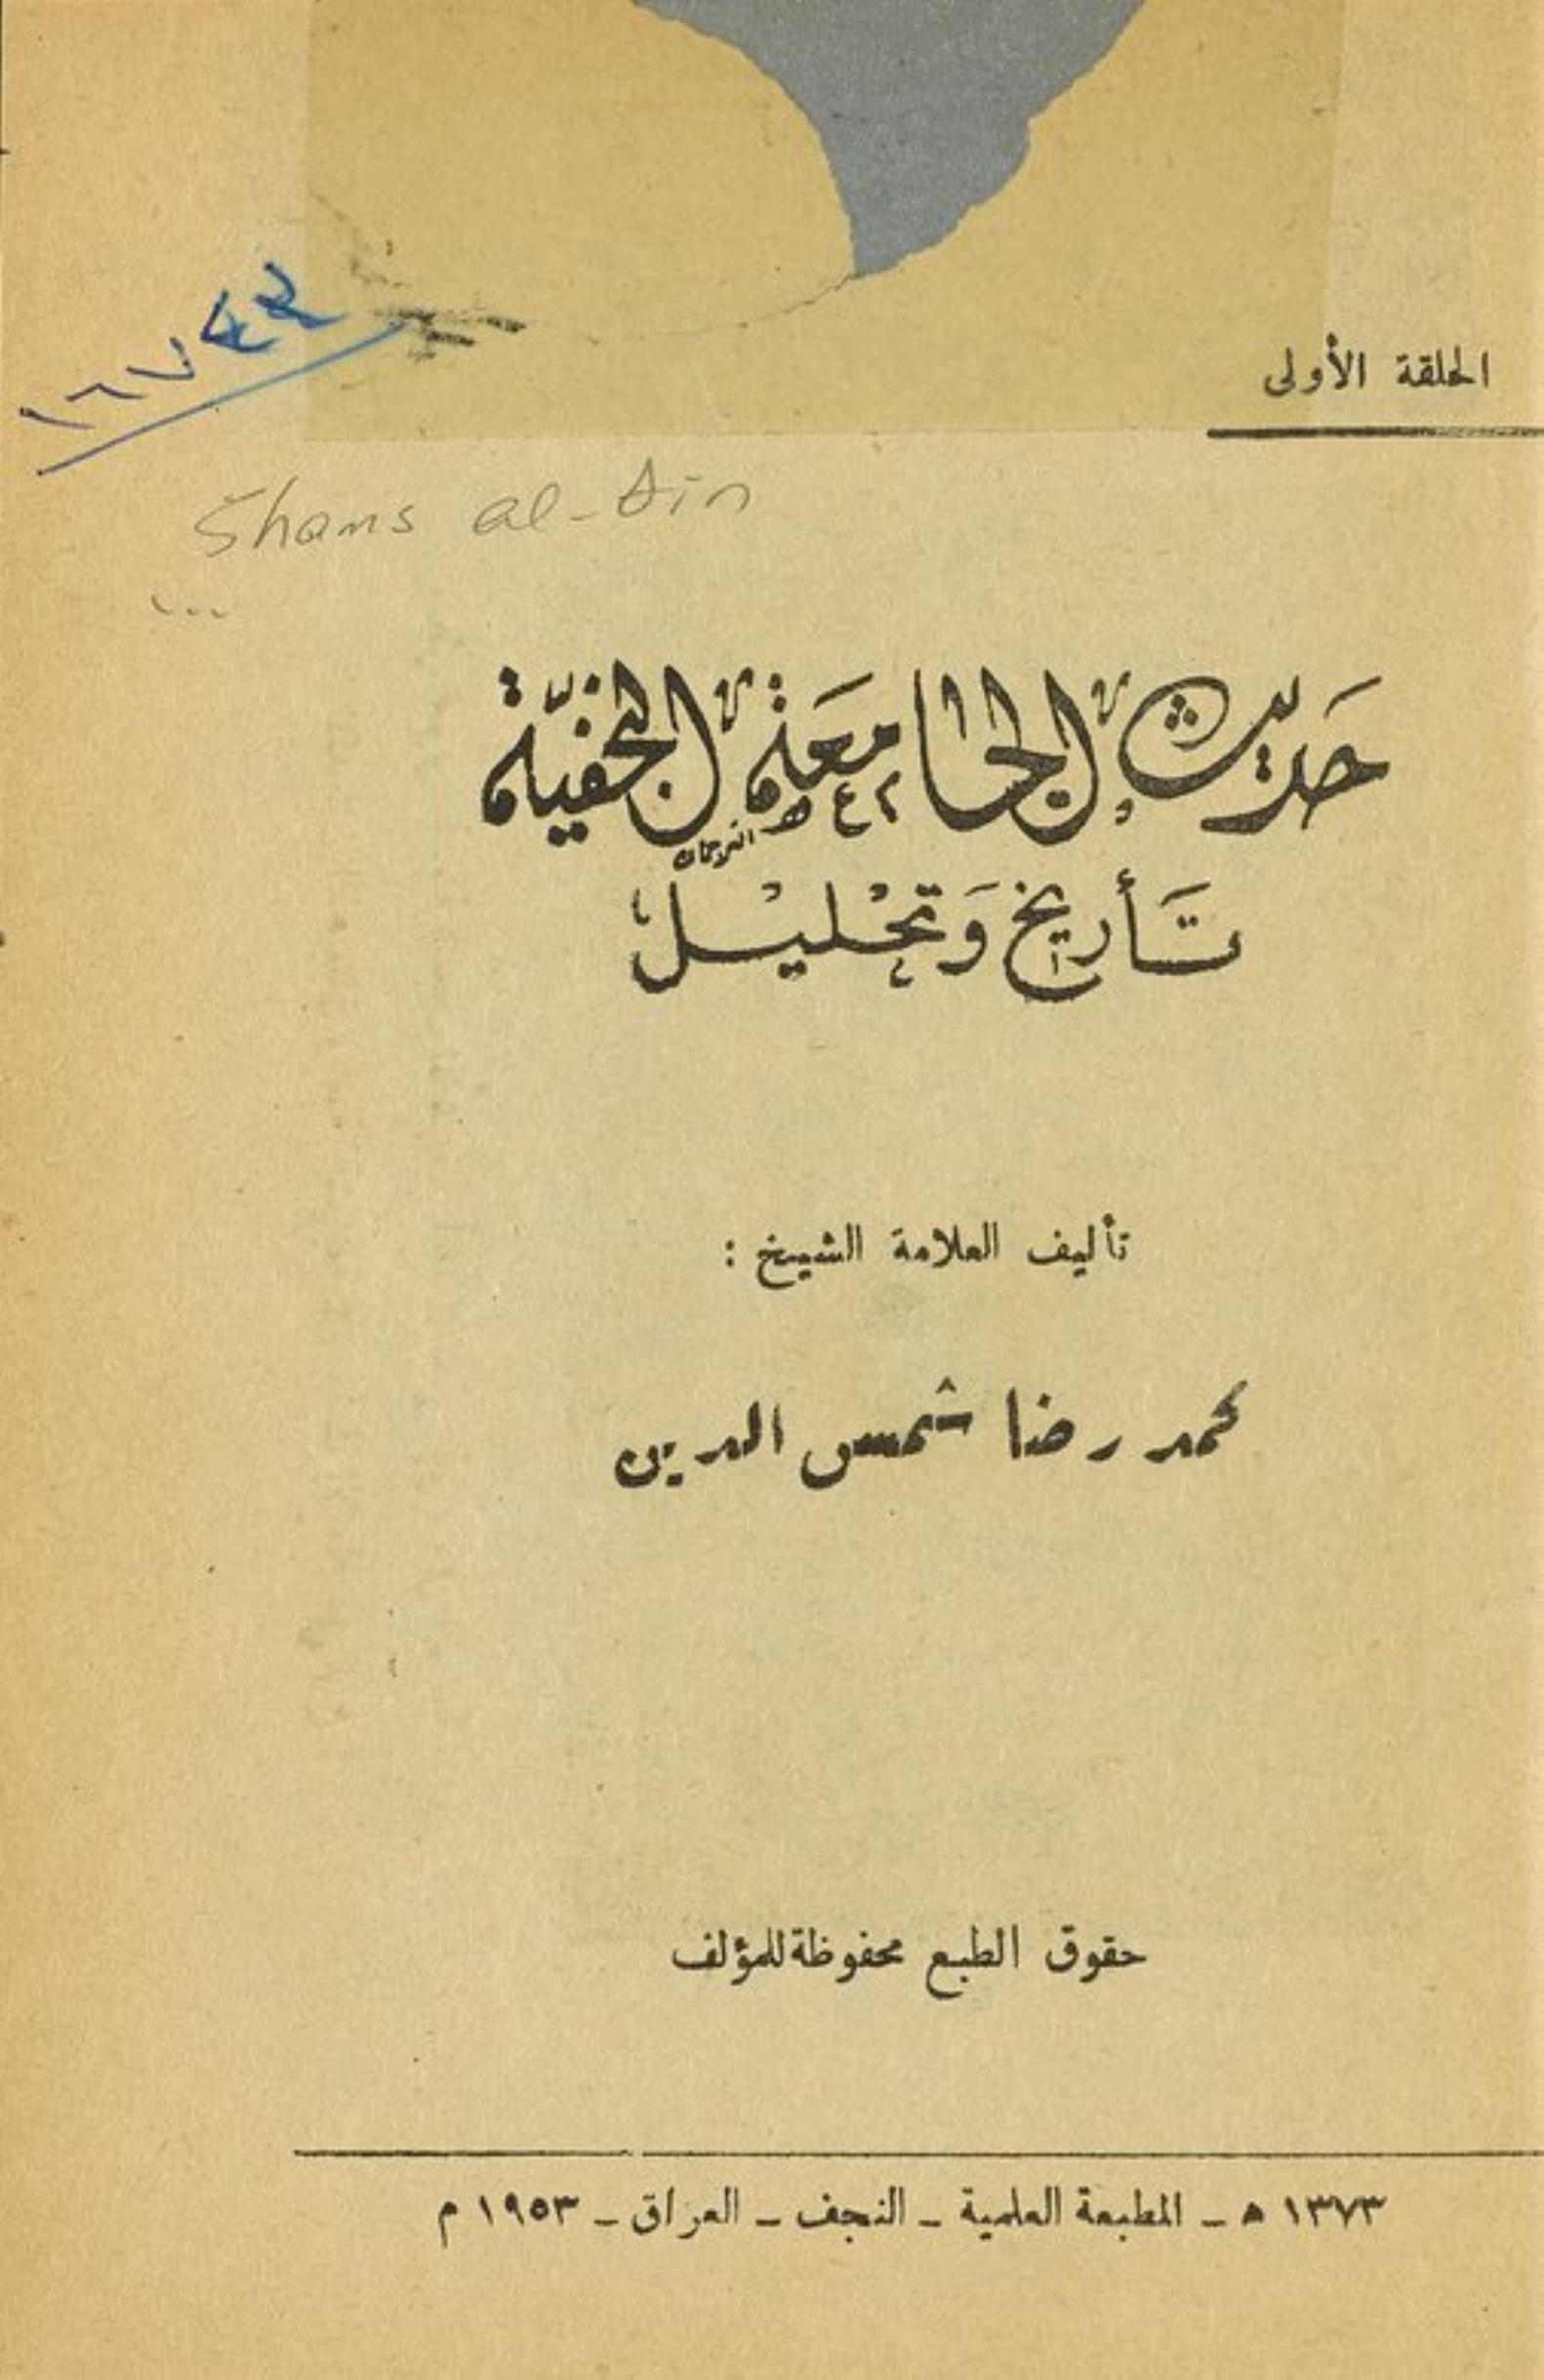 الحلقة الأولى
Shams al-Din
حديث الجامعة النجفيّة
تَأريخ وَتحْليْل
تأليف العلامة الشيخ :
محمد رضا شمس الدين
حقوق الطبع محفوظة للمؤلف
١٣٧٣ هـ - المطبعة العلمية - النجف - العراق - ١٩٥٣ م